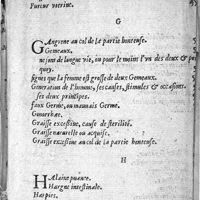 Fureur vterine.
G
GAngrene au col de la partie honteuse.
Gemeaux.
ne sont de longue vie, ou pour le moins l'vn des deux & pour
quoy.
signes que la femme est grosse de deux Gemeaux.
Generation de l'homme, ses causes, stimules & occasions.
ses deux principes.
faux Germe, ou mauuais Germe.
Gonorrhæe.
Graisse excessiue, cause de sterilité.
Graisse naturelle ou acquise.
Graisse excessiue au col de la partie honteuse.
H
HAleine puante.
Hargne intestinale.
Harpies.